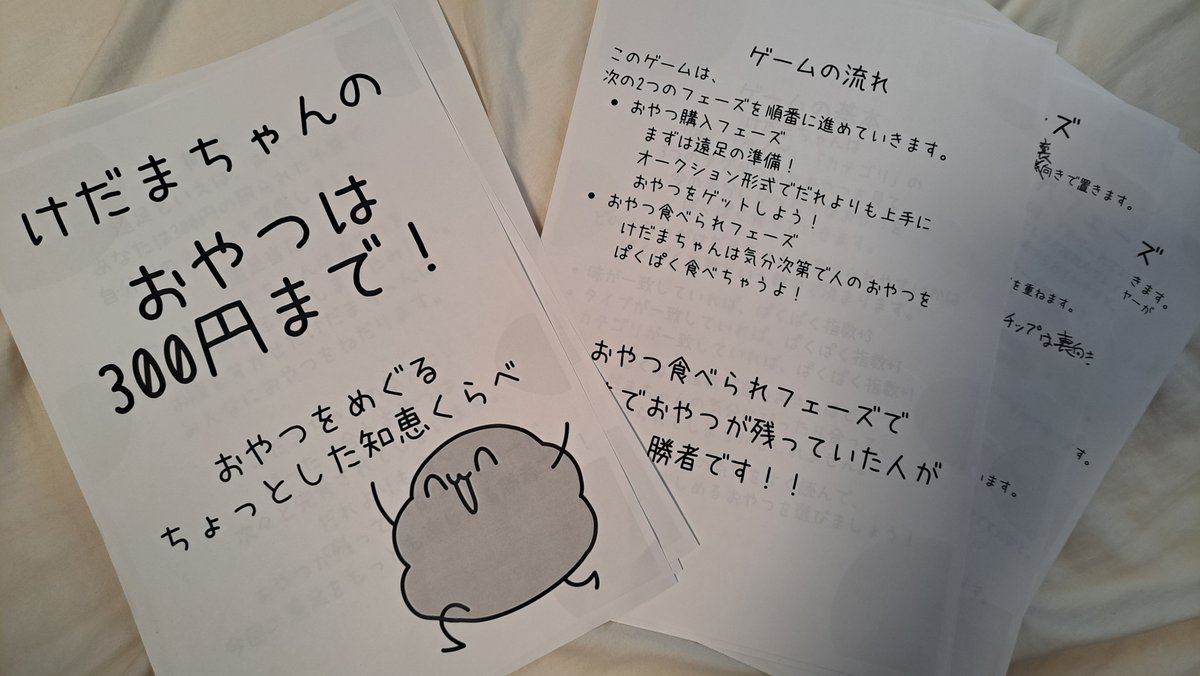 けだまちゃんの
おやつは
300円まで！
おやつをめぐる
ちょっとした知恵くらべ
ゲームの流れ
このゲームは、
次の2つのフェーズを順番に進めていきます。
• おやつ購入フェーズ
まずは遠足の準備！
オークション形式でだれよりも上手に
おやつをゲットしよう！
• おやつ食べられフェーズ
けだまちゃんは気分次第で人のおやつを
ぱくぱく食べちゃうよ！
おやつ食べられフェーズで
でおやつが残っていた人が
勝者です！！
ズ
裏
向きで置きます。
ズ
きます。
ヤーが
を重ねます。
チップは裏向き
す。
います。